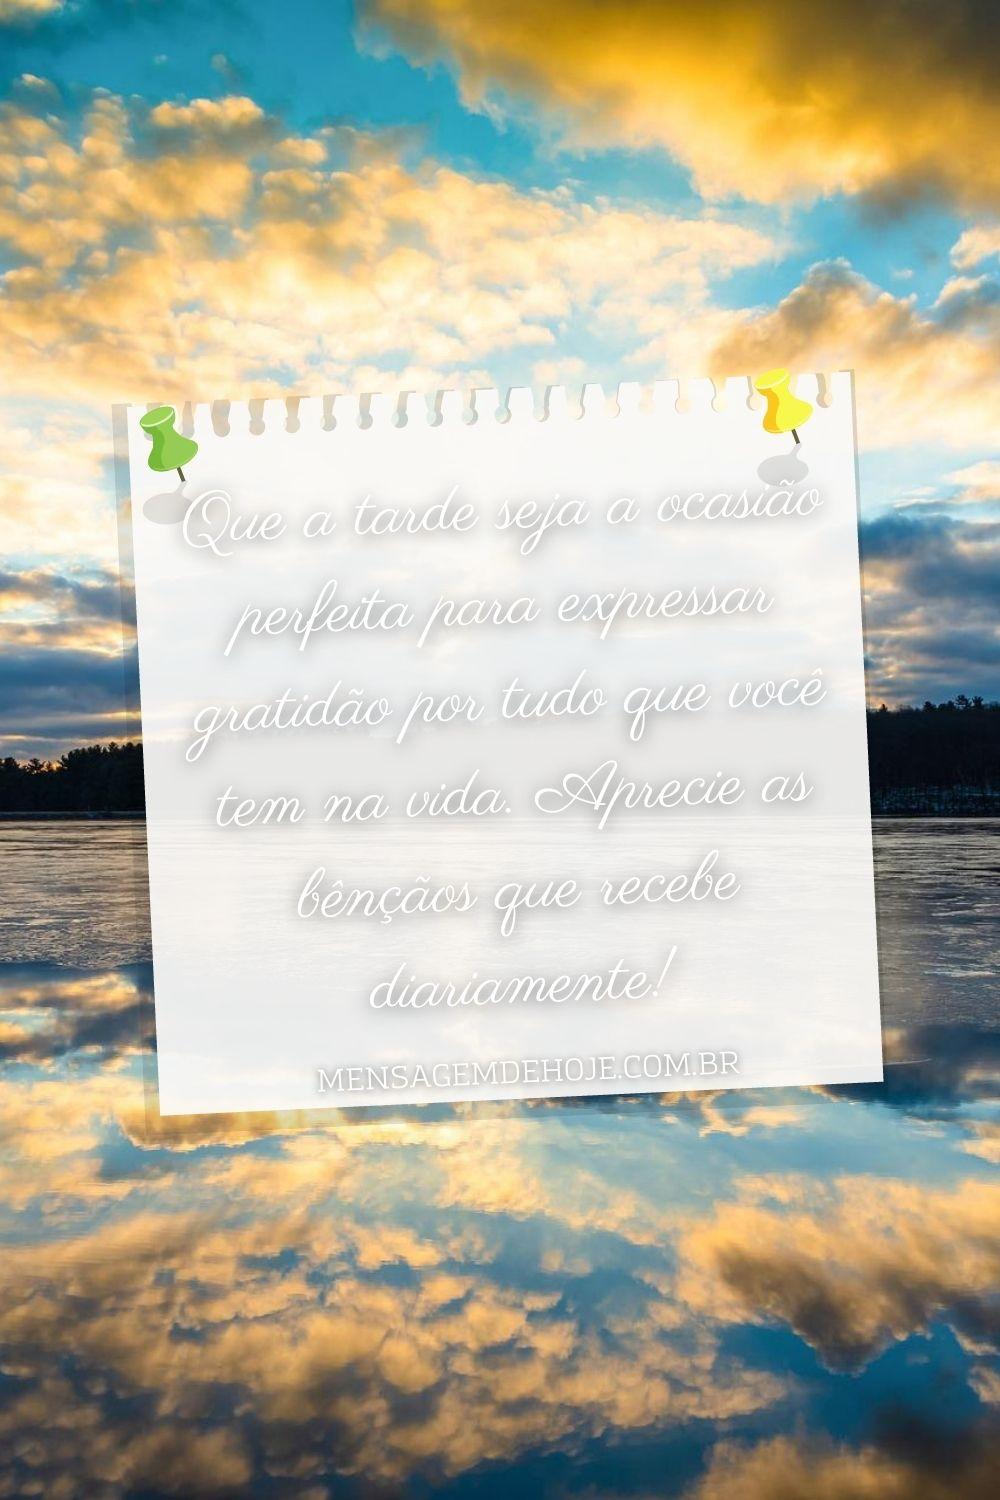 Que a tarde seja a ocasião
perfeita para expressar
gratidão por tudo que você
tem na vida. Aprecie as
bênçãos que recebe
diariamente!
MENSAGEMDEHOJE.COM.BR